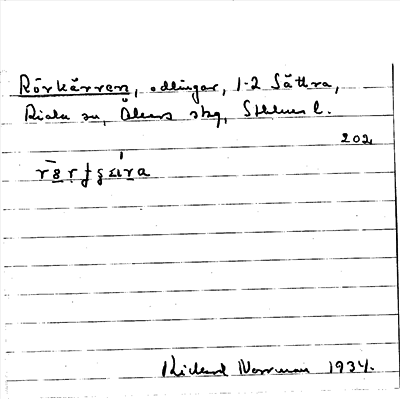 Rörkärren, odlingar, 1-2 Sättra,
Riala sn, Åkers skg, Sthlms l.
202
Rickard Norrman 1934.